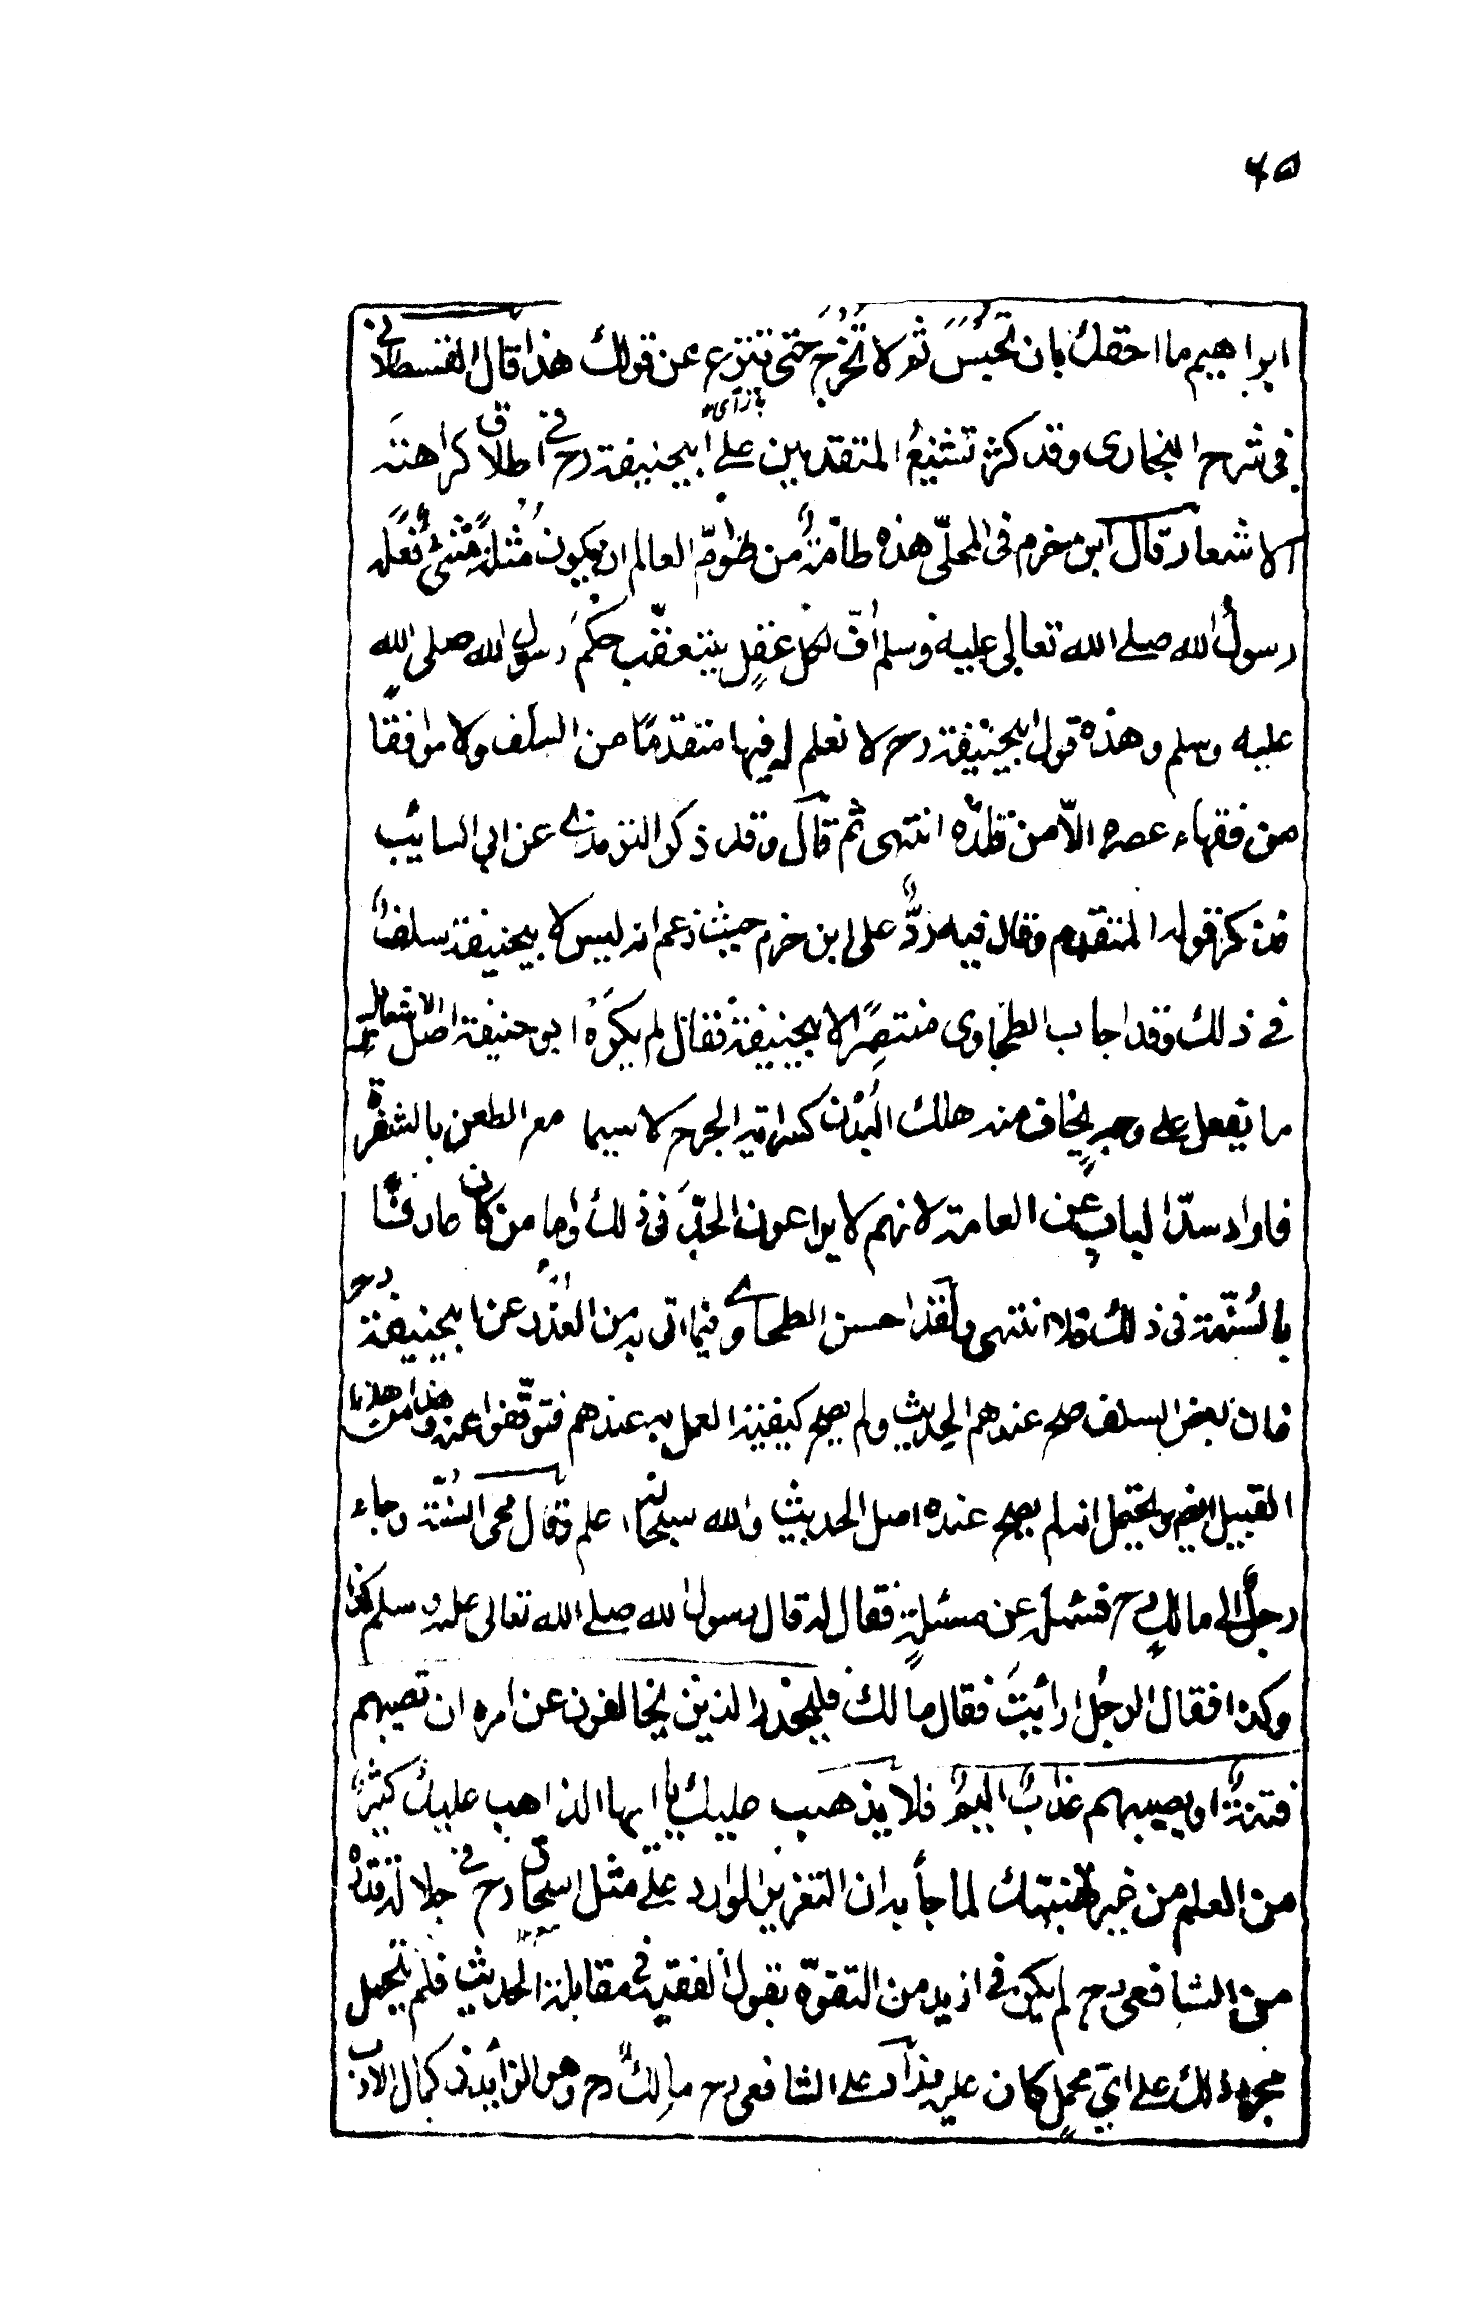 ٤٥
ابراهيم ما احقك بان تُحبَسَ ثم لا تُخرَج حتى تنزع عن قولك هذا قال القسطلانی
فی شرح البخاری وقد كثر تشنيعُ المتقدمين علے ابیحنيفة رح فے اطلاق كراهته
الاشعار قال ابن حزم فی المحلّی هذه طامّةٌ من طوامّ العالم ان يكون مُثلةً شئٌ فعله
رسولُ الله صلے الله تعالی عليه وسلم اُفٍّ لكل عقلٍ يتعقّب حكمَ رسول الله صلی الله
عليه وسلم وهذه قول ابیحنيفة رح لا نعلم له فيها متقدمًا من السلف ولا موافقًا
من فقهاء عصره الاّ من قلّده انتهی ثم قال وقد ذكر الترمذے عن ابی السايب
فذكر قوله المتقدم وقال فيه ردٌّ علی ابن حزم حيث زعم انه ليس لابیحنيفة سلفٌ
فے ذلك وقد اجاب الطحاوی منتصِرًا لابیحنيفة فقال لم يكرَه ابو حنيفة اصل الاشعار بل
ما يفعل علے وجهٍ يُخاف منه هلك البُدن كسراية الجرح لا سيما مع الطعن بالشفرة
فاراد سدّ الباب عن العامة لانهم لا يراعون الحدّ فی ذلك واما من كان عارفًا
بالسُنّة فی ذلك فلا انتهی ولقد احسن الطحاوے فيما اتی به من العُذر عن ابیحنيفة رح
فان بعض السلف صح عندهم الحديث ولم يصح كيفية العمل به عندهم فتوقّفوا عنه وهذا من هذا
القبيل ايضا ويحتمل انه لم يصح عنده اصل الحديث والله سبحانه اعلم وقال محی السُنّة وجاء
رجلٌ الی مالك رح فسئله عن مسئلةٍ فقال له قال رسول الله صلے الله تعالی عليه وسلم كذا
وكذا فقال الرجُل ارأيتَ فقال مالك فليحذر الذين يخالفون عن امره ان تصيبهم
فتنةٌ او يصيبهم عذابٌ اليمٌ فلا يذهب عليك يا ايها الذاهب عليك كثيرٌ
من العلم من غير تنبّهك لما جاء به ان التعزير الوارد علے مثل اسحاق رح فے جلالة قدره
من الشافعی رح لم يكن فی ازيد من التفوّه بقول الفقيه فی مقابلة الحديث فلم يحمل
مجرد ذلك علی ایّ محملٍ كان عليه فزاد علے الشافعی رح مالكٌ رح وهو الزائد فی كمال الادب